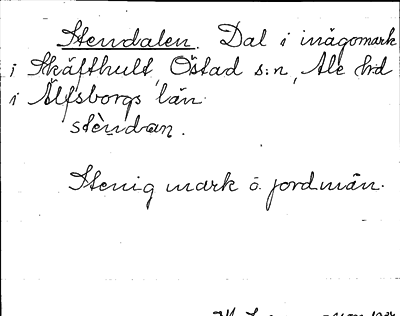 Stendalen. Dal i inägomark
i Skäfthult, Östad s:n, Ale hd
i Älfsborgs län.
stèndan.
Stenig mark o. jordmån.